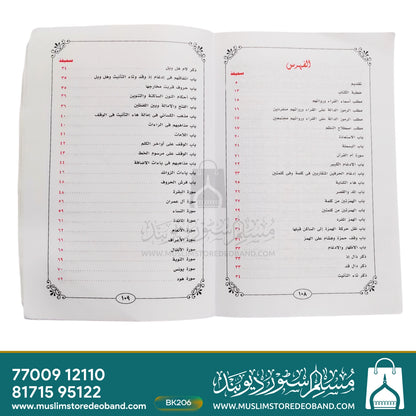 الفهرس
صحيفة
تقديم ٥
خطبة الكتاب
مطلب أسماء القراء ورواتهم
مطلب الرموز الدالة على القراء ورواتهم منفردين
مطلب الرموز الدالة على القراء ورواتهم مجتمعين
مطلب اصطلاح الناظم
باب الاستعاذة
باب البسملة
سورة أم القرآن
باب الإدغام الكبير
باب إدغام الحرفين المتقاربين في كلمة وفي كلمتين
باب هاء الكناية
باب المد والقصر
باب الهمزتين من كلمة
باب الهمزتين من كلمتين
باب الهمز المفرد
باب نقل حركة الهمزة إلى الساكن قبلها
باب وقف حمزة وهشام على الهمز
باب الإظهار والإدغام
ذكر ذال إذ
ذكر دال قد
ذكر تاء التأنيث
١٠٨
صحيفة
ذكر لام هل وبل
باب اتفاقهم في إدغام إذ وقد وتاء التأنيث وهل وبل
باب حروف قربت مخارجها
باب أحكام النون الساكنة والتنوين
باب الفتح والإمالة وبين اللفظين
باب مذهب الكسائي في إمالة هاء التأنيث في الوقف
باب مذاهبهم في الراءات
باب اللامات
باب الوقف على أواخر الكلم
باب الوقف على مرسوم الخط
باب مذاهبهم في ياءات الإضافة
باب ياءات الزوائد
باب فرش الحروف
سورة البقرة
سورة آل عمران
سورة النساء
سورة المائدة
سورة الأنعام
سورة الأعراف
سورة الأنفال
سورة التوبة
سورة يونس
سورة هود
١٠٩
مسلم سٹور دیوبند
WWW.MUSLIMSTOREDEOBAND.COM
77009 12110
81715 95122
مسلم سٹور دیوبند
www.muslimstoredeoband.com
BK206
WWW.MUSLIMSTOREDEOBAND.COM